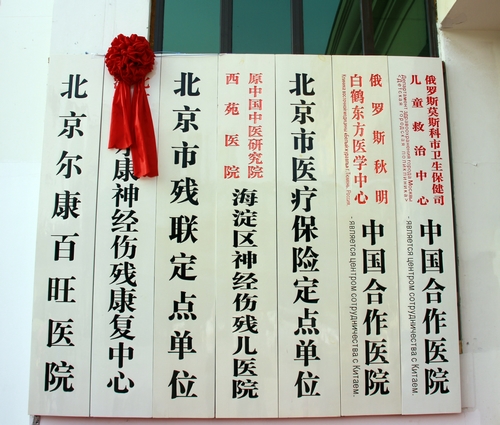 北京尔康百旺医院
康神经伤残康复中心
北京市残联定点单位
原中国中医研究院
西苑医院
海淀区神经伤残儿医院
北京市医疗保险定点单位
俄罗斯秋明
白鹤东方医学中心
中国合作医院
- является центром сотрудничества с Китаем.
俄罗斯莫斯科市卫生保健司
儿童救治中心
Департамент здравоохранения города Москвы
"Детская городская поликлиника"
中国合作医院
- является центром сотрудничества с Китаем.